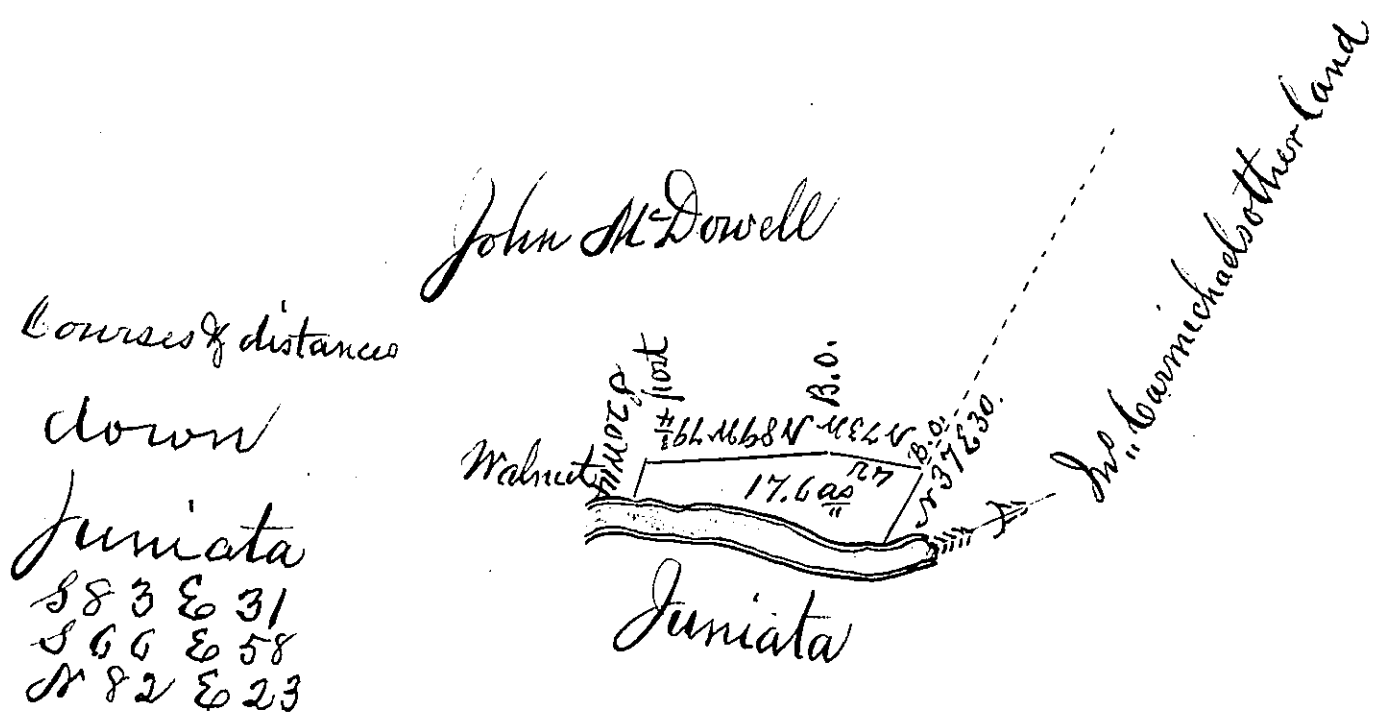 John McDowell
Courses & distances
down
Juniata
S 83 E 31
S 66 E 58
N 82 E 23
Walnut
S 20 W 14
post
N 89 W 79¾
B.O.
N 73 W
27
B.O.
N 37 E 30.
17.6 as
Juniata
Jno Carmichaels other land